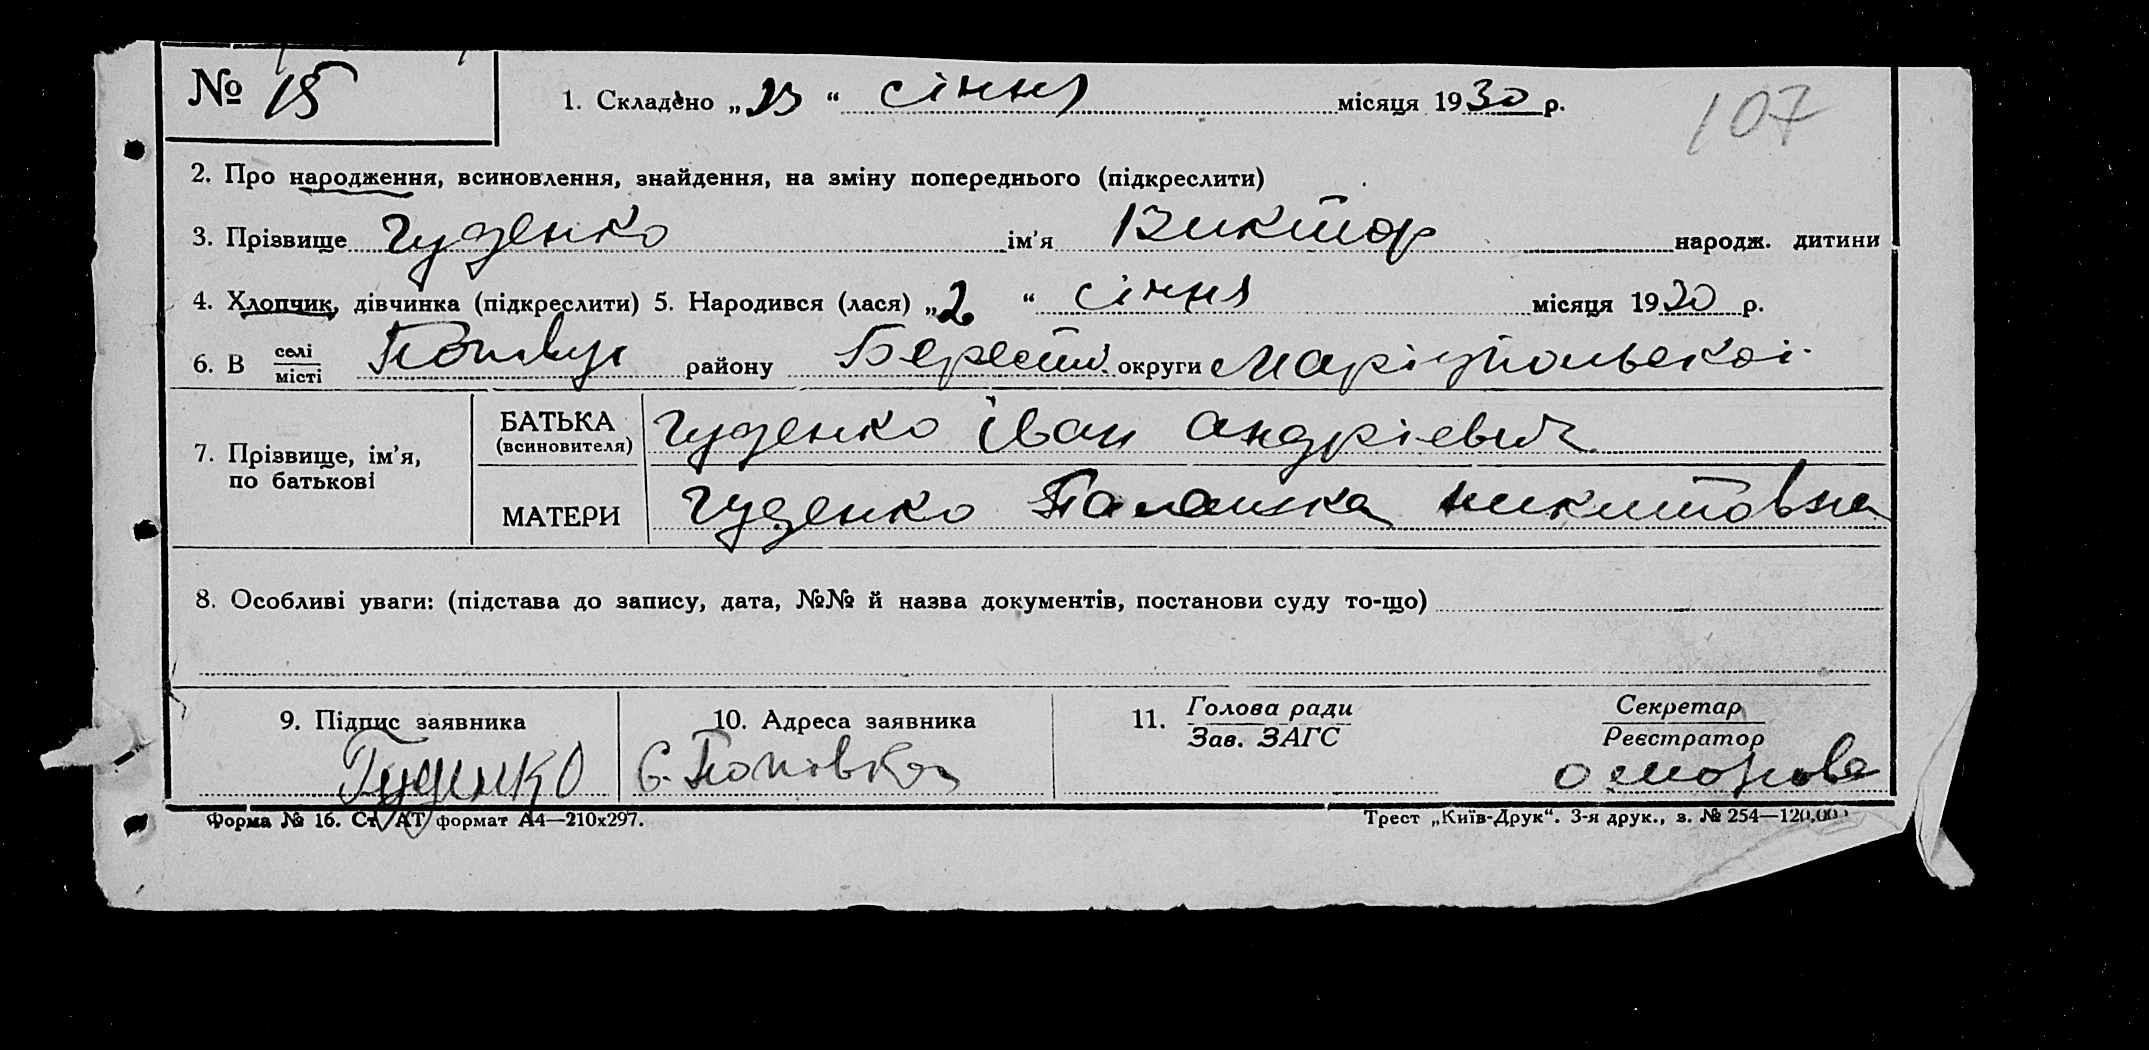 № 15 1. Складено „23“ січня місяця 1930 р.
107
2. Про народження, всиновлення, знайдення, на зміну попереднього (підкреслити)
3. Прізвище Гуденко ім’я Виктор народж. дитини
4. Хлопчик, дівчинка (підкреслити) 5. Народився (лася) „2“ січня місяця 1930 р.
6. В селі / місті района Берестів. округи Маріупольської
7. Прізвище, ім’я, по батькові
БАТЬКА (всиновителя) Гуденко Іван Андрієвич
МАТЕРИ Гуденко Палашка Никитовна
8. Особливі уваги: (підстава до запису, дата, №№ й назва документів, постанови суду то-що)
9. Підпис заявника 10. Адреса заявника 11. Голова ради / Зав. ЗАГС Секретар / Реєстратор
Гуденко с. Поповка
Форма № 16. Ст. АТ формат А4—210х297. Трест „Київ-Друк“. 3-я друк., з. № 254—120.000